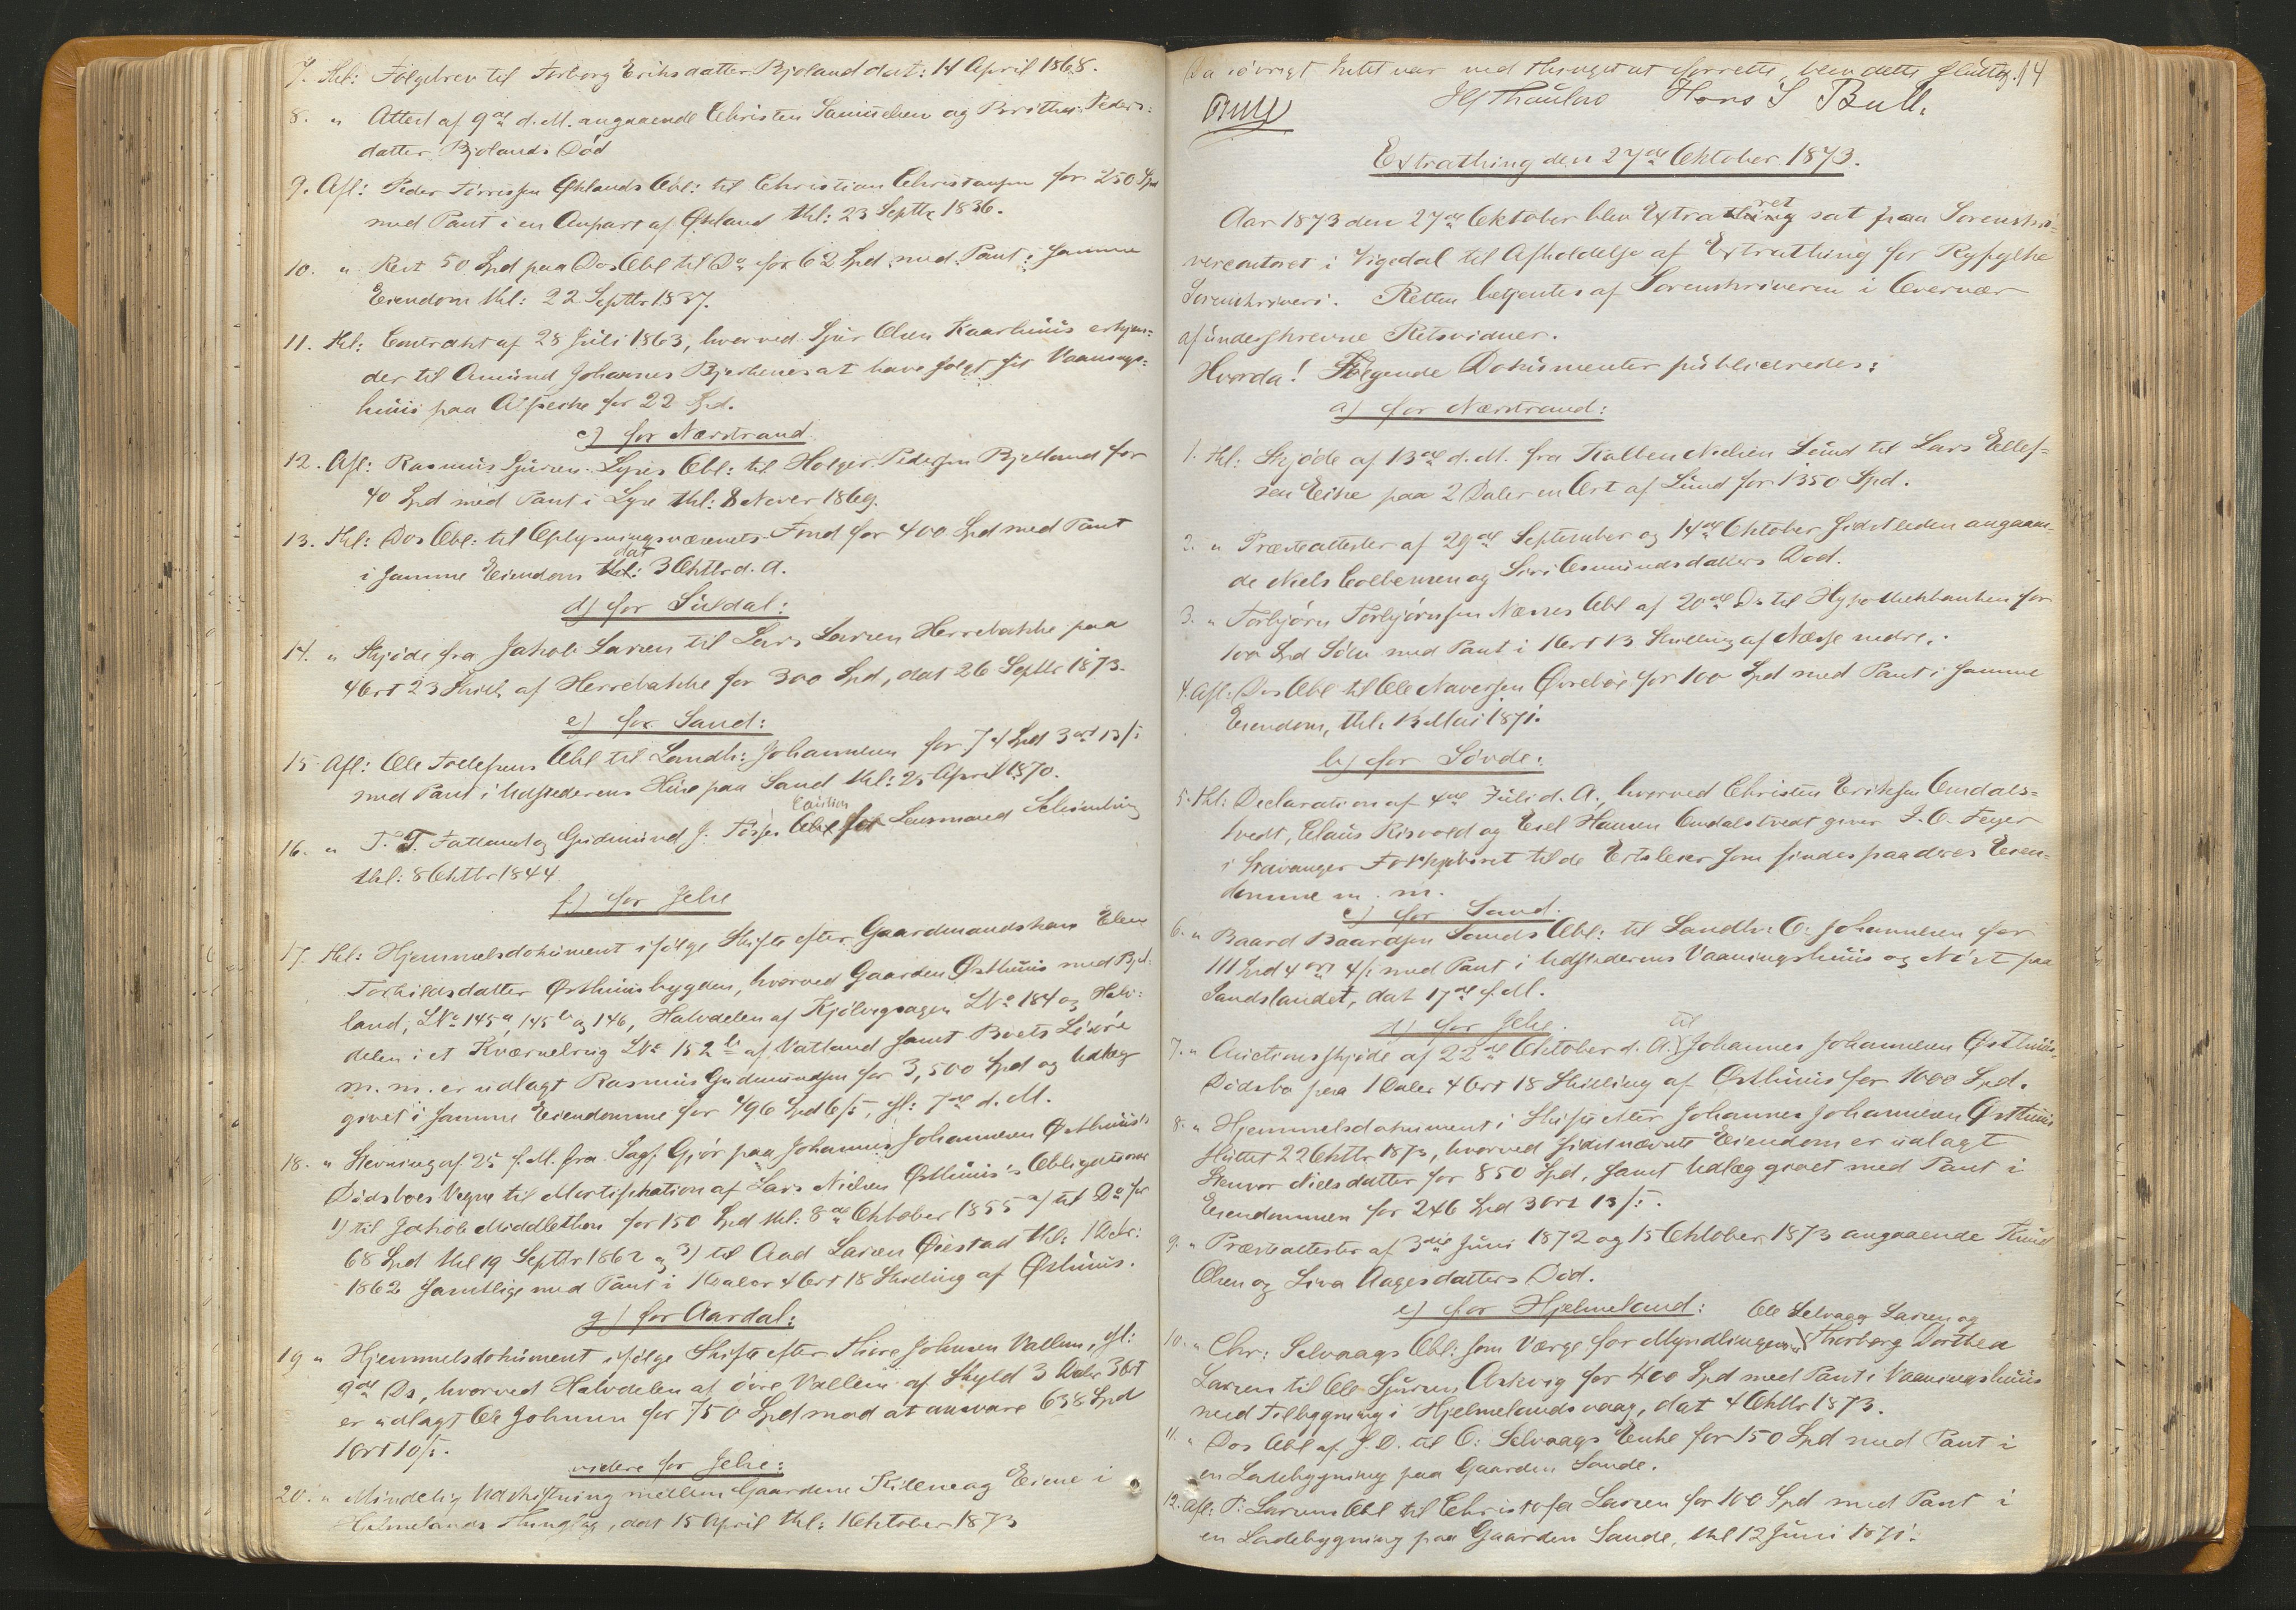 7. Thl: Følgebrev til Torborg Eriksdatter Bjoland dat: 14 April 1868.
8. " Attest af 9de d. M. angaaende Christen Samuelsen og Birthe Peders-
datter Bjolands Død
9. Afl: Peder Tørressen Øklands Obl: til Christian Christansen for 250 Spd
med Pant i en Anpart af Økland thl: 23 Septbr 1836.
10. " Rest 50 Spd paa Dos Obl til Do for 62 Spd med Pant i samme
Eiendom thl: 22 Septbr 1837.
11. Thl: Contrakt af 28 Juli 1863, hvorved Sjur Olsen Kaarhuus erkjen-
der til Amund Johannes Bjerkenes at have solgt sit Vaanings-
huus paa for 22 Spd.
c) for Nærstrand
12. Afl: Rasmus Sjursen Lyres Obl: til Holger Pedersen Bjelland for
40 Spd med Pant i Lyre thl: 8 Novbr 1869.
13. Thl: Dos Obl: til Oplysningsvæsenets Fond for 400 Spd med Pant
i samme Eiendom dat 3 Oktbr d. A.
d) for Suldal:
14. " Skjøde fra Jakob Larsen til Lars Larsen Herrebakke paa
4 Ort 23 Skill. af Herrebakke for 300 Spd, dat 26 Septbr 1873.
e) for Sand:
15. Afl: Ole Tollefsens Obl til Landh: Johannesen for 74 Spd 3 ort 13 s:
med Pant i Udstederens Huse paa Sand thl: 25 April 1870.
16. " T. T. Fatland og Gudmund J. Caution for Lensmand
thl: 8 Oktbr 1844
f) for Jelse
17. Thl: Hjemmelsdokument ifølge Skifte efter Gaardmandskone Elen
Torkildsdatter Østhuusbygden, hvorved Gaarden Østhuus med Bjel-
land, LNo 145a, 145b og 146, Halvdelen af Kjølvigsagen LNo 184 og Halv-
delen i et Kværnebrug LNo 152b af Vatland samt Boets Løsøre
m. m. er udlagt Rasmus Gudmundsen for 3,500 Spd og Udlæg
givet i samme Eiendomme for 496 Spd 6 s:, sl: 7de d. M.
18. " Stevning af 25 f. M. fra Sagf. Gjør paa Johannes Johannesen Østhuus's
Dødsboes Vegne til Mortifikation af Lars Nielsen Østhuus's Obligationer
1) til Jakob Middelthon for 150 Spd thl: 8de Oktober 1855 2) til Do for
68 Spd thl 19 Septbr 1862 og 3) til Aad Larsen Øiestad thl: 1 Debr:
1862 samtlige med Pant i 1 Daler 4 Ort 18 Skilling af Østhuus.
g) for Aardal:
19 " Hjemmelsdokument ifølge Skifte efter Thore Johnsen Vallem, sl:
9de Ds, hvorved Halvdelen af øvre Vallem af Skyld 3 Daler 3 Ort
er udlagt Ole Johnsen for 750 Spd mod at ansvare 638 Spd
1 Ort 10 s:
videre for Jelse:
20. " Mindelig Udskiftning mellem Gaardene Killene og Eiene i
Hjelmelands Thinglag, dat 15 April thl: 1 Oktober 1873
Da iøvrigt Intet var ved Thinget at forrette, blev dette sluttet. 14
Thaulow Hans S Bull.
Bull
Extrathing den 27de Oktober 1873.
Aar 1873 den 27de Oktober blev Extraret sat paa Sorenskri-
vercontoret i Vigedal til Afholdelse af Extrathing for Ryfylke
Sorenskriveri. Retten betjentes af Sorenskriveren i Overvær
af underskrevne Retsvidner.
Hvorda! Følgende Dokumenter publiceredes:
a) for Nærstrand:
1. Thl: Skjøde af 13de d. M. fra Kolben Nielsen Lund til Lars Ellef-
sen Eike paa 2 Daler en Ort af Lund for 1350 Spd.
2. " Præsteattester af 29de September og 14de Oktober sidstleden angaaen-
de Niels Colbensen og Siri Osmundsdatters Død.
3. " Torbjørn Torbjørnsen Næsses Obl af 20de Ds til Hypothekbanken for
100 Spd Sølv med Pant i 1 Ort 13 Skilling af Næsse nedre.
4. Afl: Dos Obl til Ole Øvrebøe for 100 Spd med Pant i samme
Eiendom, thl. 13 Mai 1871.
b) for Søvde:
5. Thl: Declaration af 4de Juli d. A., hvorved Christen Eriksen Omdals-
tvedt, Claus Risvold og Esel Hansen Omdalstvedt giver I. O. Feyer
i Stavanger Forkjøbsret til de Ertsleier som findes paa deres Eien-
domme m. m.
c) for Sand.
6. " Baard Baardsen Sands Obl: til Landh: O. Johannesen for
111 Spd 4 ort 4 s: med Pant i Udstederens Vaaningshuus og Nøst paa
Sandslandet, dat 17de f. M.
d) for Jelse.
7. " Auctionsskjøde af 22de Oktober d. A. til Johannes Johannesen Østhuus
Dødsbo paa 1 Daler 4 Ort 18 Skilling af Østhuus for 1000 Spd.
8. " Hjemmelsdokument i Skifte efter Johannes Johannesen Østhuus
sluttet 22 Oktbr 1873, hvorved sidstnævnte Eiendom er udlagt
Steuvor Nielsdatter for 850 Spd, samt Udlæg givet med Pant i
Eiendommen for 246 Spd 3 Ort 13 s:.
9. " Præsteattester af 3die Juni 1872 og 15 Oktober 1873 angaaende Knud
Olsen og Siva Aagesdatters Død.
e) for Hjelmeland:
10. " Chr: Selvaags Obl: som Værge for Myndlingerne Ole Selvaag Larsen og Thorborg Dorthea
Larsen til Ole Sjursen Askvig for 400 Spd med Pant i Vaaningshuus
med Tilbygning i Hjelmelandsvaag, dat 4 Oktbr 1873.
11. " Dos Obl af s. D. til O: Selvaags Enke for 150 Spd med Pant i
en Ladebygning paa Gaarden Sande.
12. Afl: P: Larsens Obl til Christofer Larsen for 100 Spd med Pant i
en Ladebygning paa Gaarden Sande, thl 12 Juni 1871.